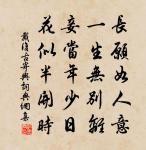 長願如人意
一生無別離
妾當年少日
花似半開時
戴復古寄興詞典網集